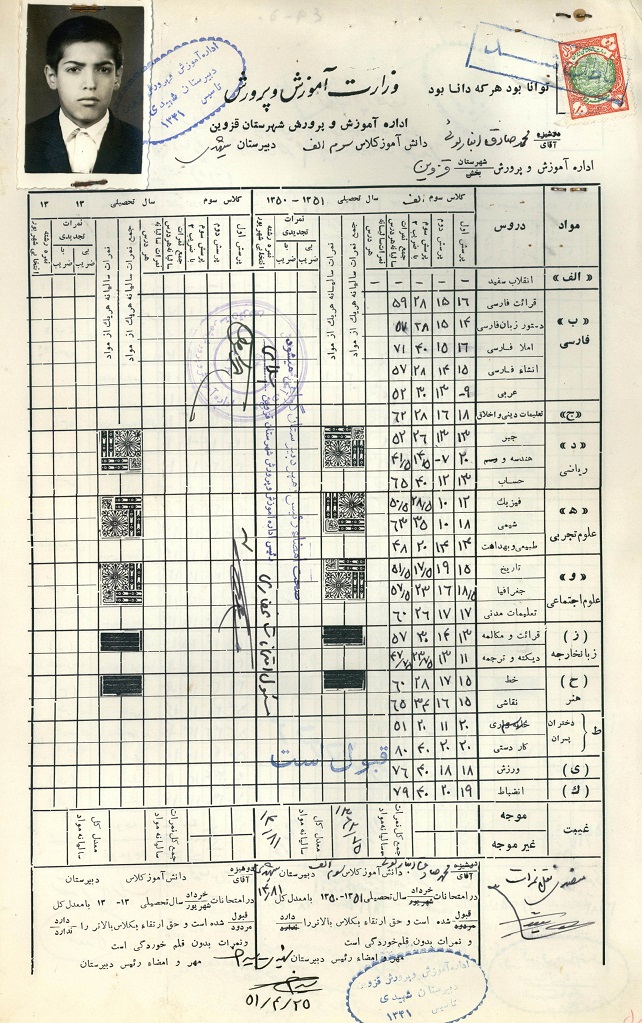 توانا بود هر که دانا بود
وزارت آموزش و پرورش
اداره آموزش و پرورش شهرستان قزوین
دوشیزه آقای محمد صادق انبارلوئی دانش آموز کلاس سوم الف دبیرستان شهیدی
اداره آموزش و پرورش شهرستان بخش قزوین
اداره آموزش و پرورش قزوین
دبیرستان شهیدی
تاسیس ۱۳۴۱
کلاس سوم الف سال تحصیلی ۱۳۵۱ - ۱۳۵۰
کلاس سوم سال تحصیلی ۱۳ ۱۳
مواد دروس پرسش اول پرسش دوم پرسش سوم با ضریب ۲ جمع نمرات سالیانه هر درس
نمرات تجدیدی
« الف » انقلاب سفید - - - -
« ب » فارسی
قرائت فارسی ۱۶ ۱۵ ۲۸ ۵۹
دستور زبان فارسی ۱۴ ۱۵ ۲۸ ۵۷
املاء فارسی ۱۶ ۱۵ ۴۰ ۷۱
انشاء فارسی ۱۵ ۱۴ ۲۸ ۵۷
عربی ۹- ۱۳ ۳۰ ۵۲
« ج » تعلیمات دینی و اخلاق ۱۸ ۱۶ ۲۸ ۶۲
« د » ریاضی
جبر ۱۳ ۱۳ ۲۶ ۵۲
هندسه و رسم ۲۰ ۷- ۱۴/۵ ۴۱/۵
حساب ۱۳ ۱۲ ۴۰ ۶۵
« ه » علوم تجربی
فیزیک ۱۲ ۱۰ ۲۸/۵ ۵۰/۵
شیمی ۱۸ ۱۰ ۳۵ ۶۳
طبیعی و بهداشت ۱۴ ۱۴ ۲۰ ۴۸
« و » علوم اجتماعی
تاریخ ۱۵ ۱۹ ۱۷/۵ ۵۱/۵
جغرافیا ۱۸/۵ ۱۶ ۲۳ ۵۷/۵
تعلیمات مدنی ۱۷ ۱۷ ۲۶ ۶۰
( ز ) زبان خارجه
قرائت و مکالمه ۱۳ ۱۴ ۳۰ ۵۷
دیکته و ترجمه ۱۱ ۱۳ ۲۳/۷۵ ۴۷/۷۵
( ح ) هنر
خط ۱۵ ۱۷ ۲۸ ۶۰
نقاشی ۱۵ ۱۶ ۳۴ ۶۵
ط دختران پسران
۲۰ ۱۱ ۲۰ ۵۱
کار دستی ۲۰ ۲۰ ۴۰ ۸۰
( ی ) ورزش ۱۸ ۱۸ ۴۰ ۷۶
( ک ) انضباط ۱۹ ۲۰ ۴۰ ۷۹
قبول است
غیبت موجه
غیر موجه
جمع کل نمرات سالیانه مواد
معدل کل سالیانه مواد
۱۳/۸۱
دوشیزه آقای محمد صادق انبارلوئی دانش آموز کلاس سوم الف دبیرستان شهیدی
در امتحانات خرداد شهریور سال تحصیلی ۱۳۵۱-۱۳۵۰ با معدل کل ۱۳/۸۱
قبول مردود شده است و حق ارتقاء بکلاس بالاتر را دارد ندارد
و نمرات بدون قلم خوردگی است
مهر و امضاء رئیس دبیرستان
۵۱/۴/۲۵
دوشیزه آقای دانش آموز کلاس دبیرستان
در امتحانات خرداد شهریور سال تحصیلی ۱۳ - ۱۳ با معدل کل
قبول مردود شده است و حق ارتقاء بکلاس بالاتر را دارد ندارد
و نمرات بدون قلم خوردگی است
مهر و امضاء رئیس دبیرستان
اداره آموزش و پرورش قزوین
دبیرستان شهیدی
تاسیس ۱۳۴۱